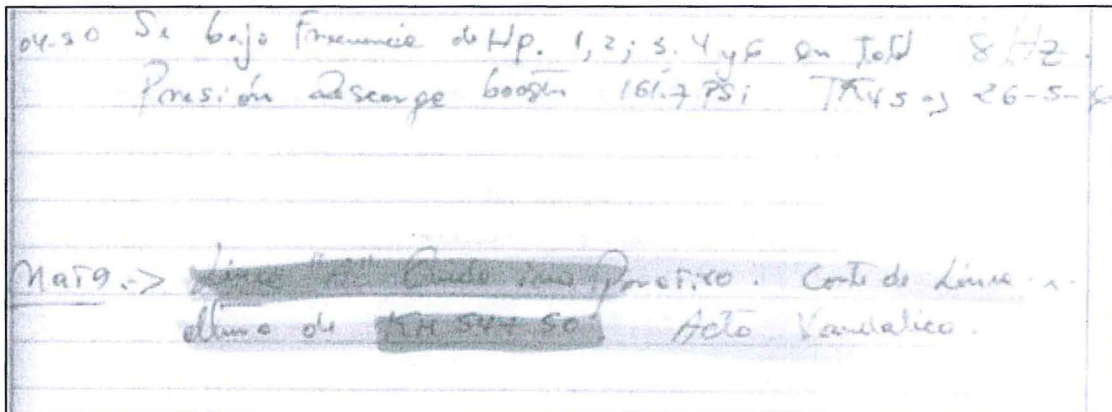 04:30 Se bajo Frecuencia de Hp. 1, 2; 3. 4 y 6 en Total 8 Hz.
Presión Descarge booster 161.7 PSi TK45 a) 26-5-
Nota.-> Linea Crudo Corte de Linea
de KM 547 50 Acto Vandalico.